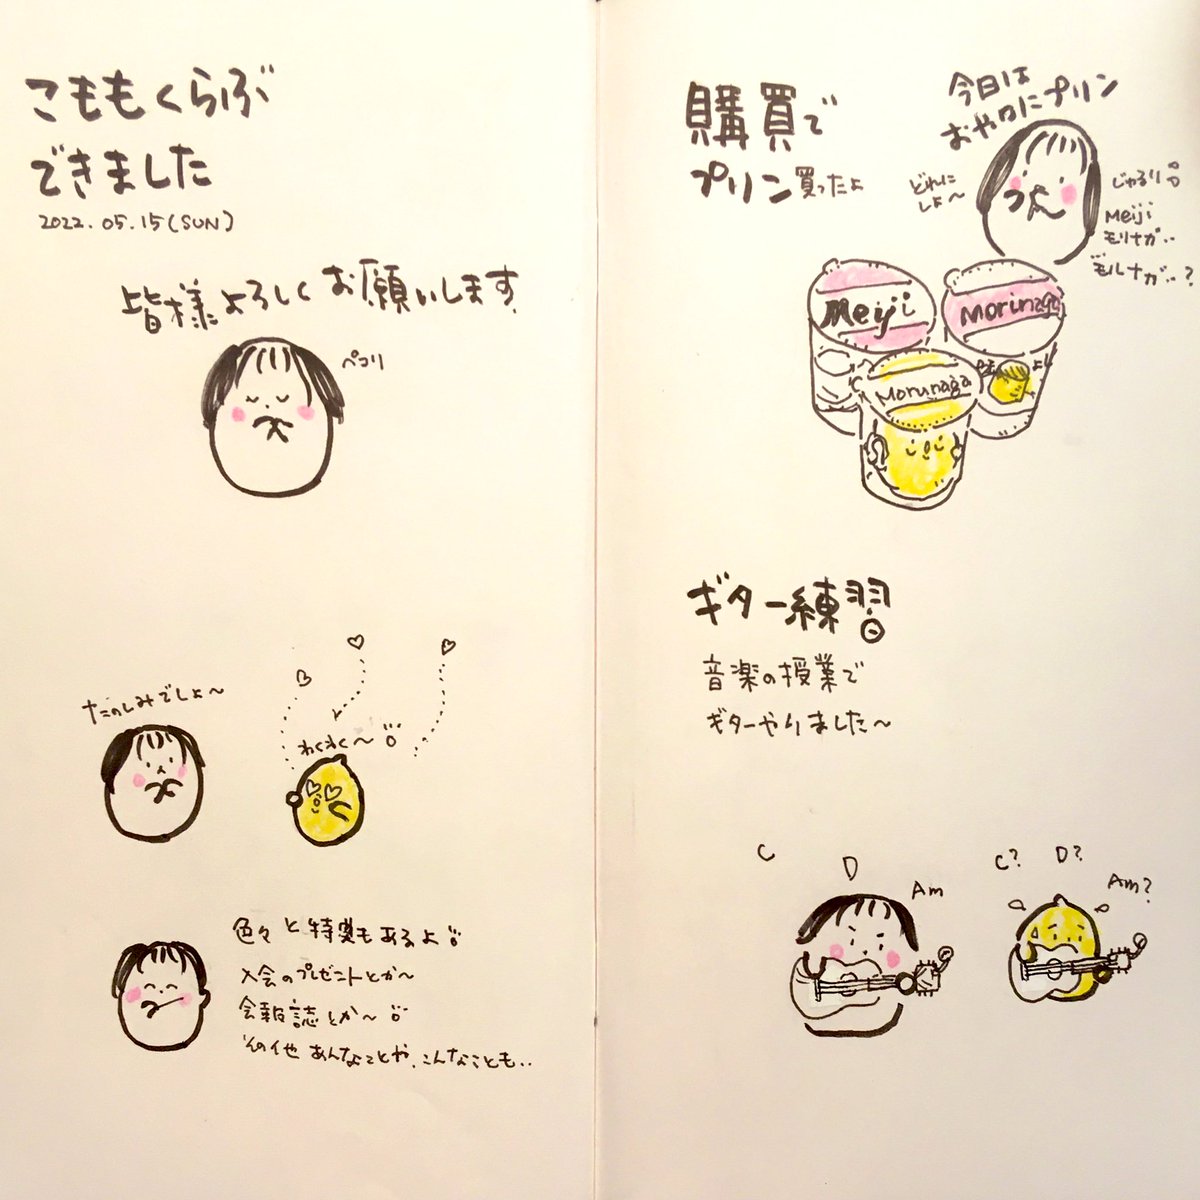 こももくらぶ
できました
2022.05.15(SUN)
皆様よろしくお願いします。
ぺコリ
たのしみでしょ〜
わくわく〜
色々と特典もあるよ
入会のプレゼントとか〜
会報誌とか〜
その他 あんなことや、こんなことも..
購買で
プリン買ったよ
今日は
おやつにプリン
どれに
しよ〜
じゅるり
Meiji
モリナガ..
モルナガ..?
Meiji
Morinaga
Morunaga
ギター練習
音楽の授業で
ギターやりました〜
C
D
Am
C?
D?
Am?